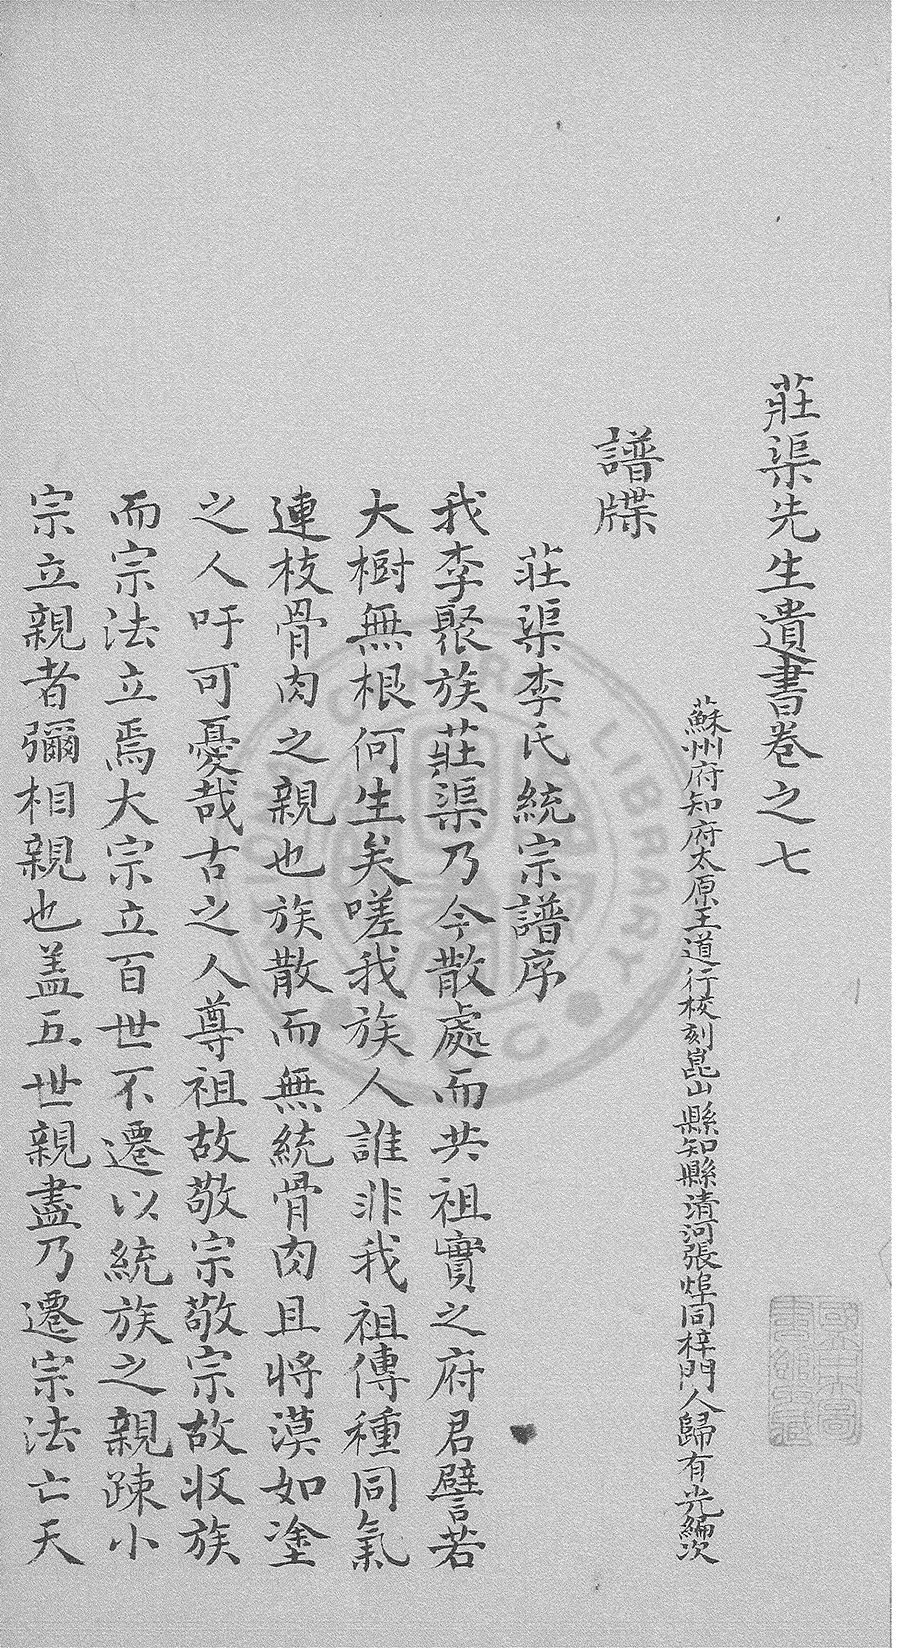 莊渠先生遺書卷之七
蘇州府知府太原王道行校刻崑山縣知縣清河張焯同梓門人歸有光編次
譜牒
莊渠李氏統宗譜序
我李聚族莊渠乃今散處而共祖實之府君譬若
大樹無根何生矣嗟我族人誰非我祖傳種同氣
連枝骨肉之親也族散而無統骨肉且將漠如塗
之人吁可憂哉古之人尊祖故敬宗敬宗故收族
而宗法立焉大宗立百世不遷以統族之親踈小
宗立親者彌相親也盖五世親盡乃遷宗法亡天